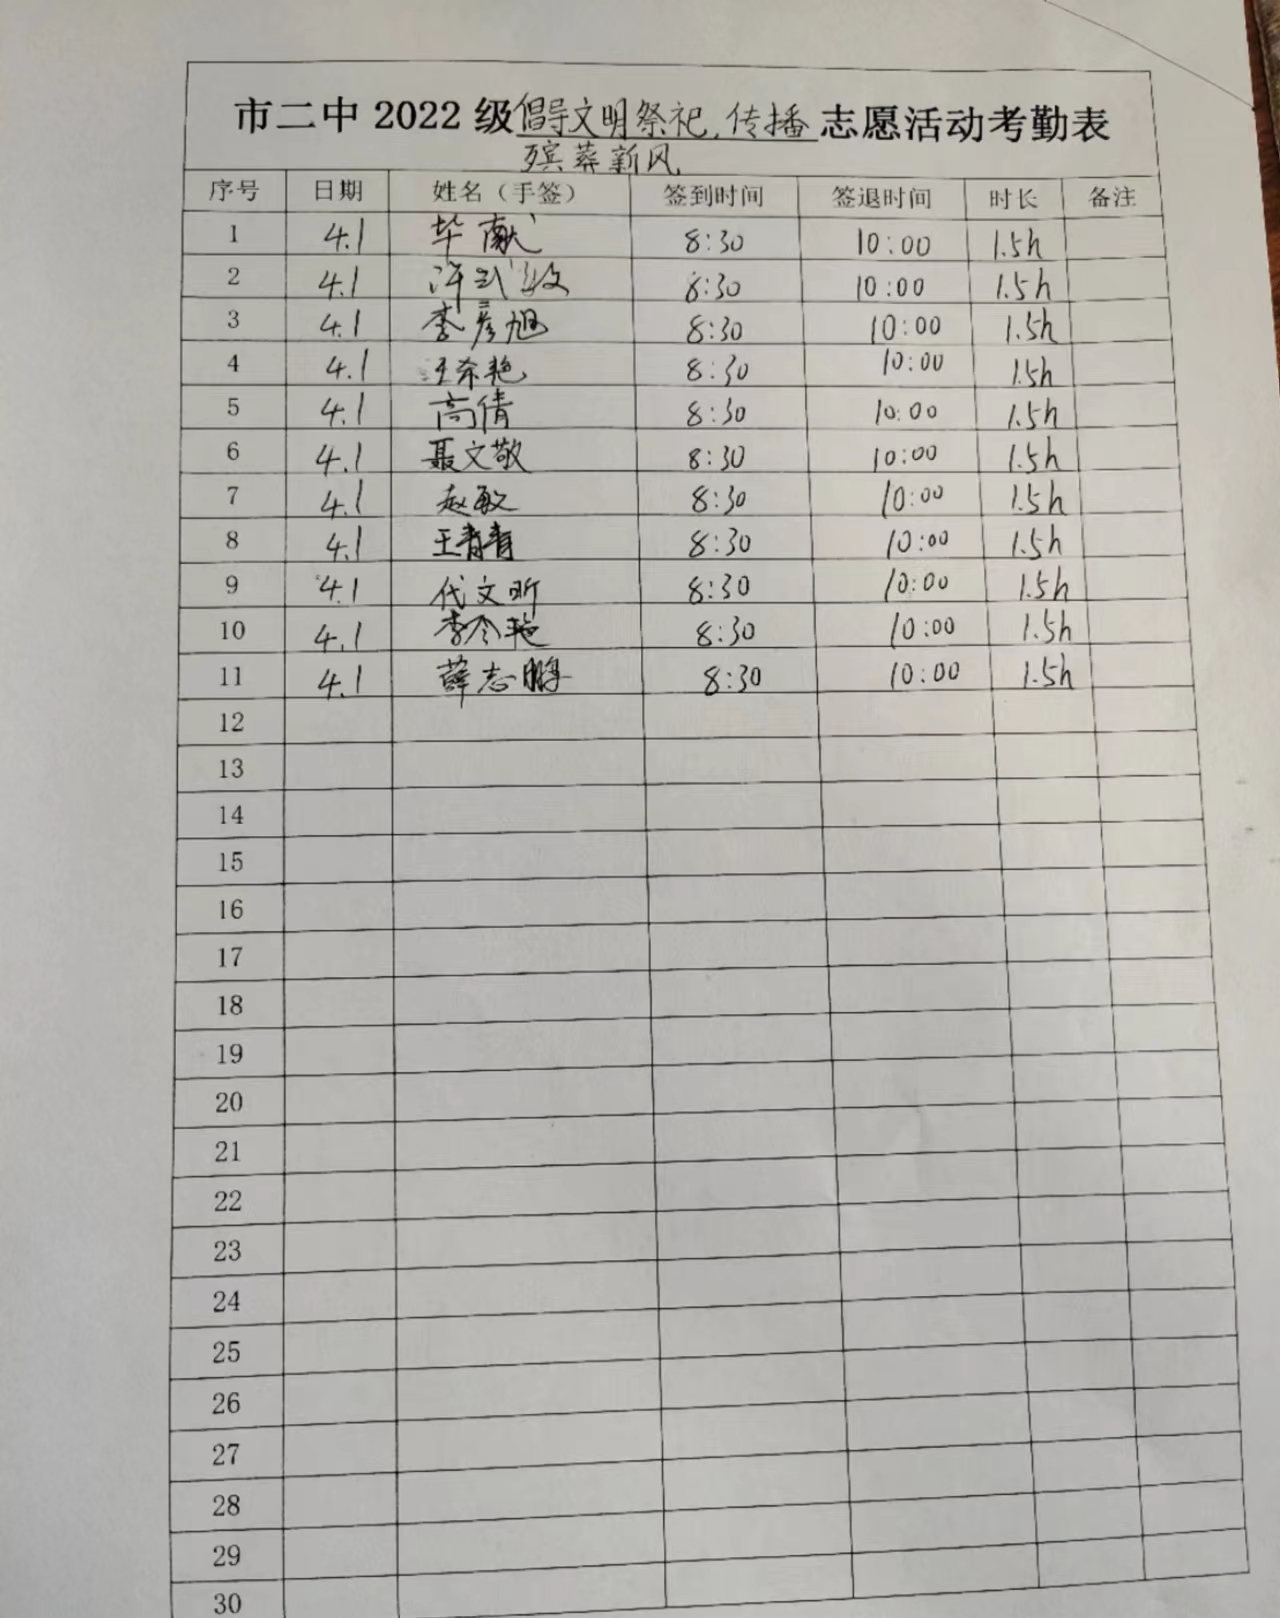 市二中 2022 级倡导文明祭祀,传播志愿活动考勤表
殡葬新风
序号 日期 姓名（手签） 签到时间 签退时间 时长 备注
1 4.1 毕献 8:30 10:00 1.5h
2 4.1 8:30 10:00 1.5h
3 4.1 李彦旭 8:30 10:00 1.5h
4 4.1 汪希艳 8:30 10:00 1.5h
5 4.1 高倩 8:30 10:00 1.5h
6 4.1 聂文敬 8:30 10:00 1.5h
7 4.1 赵敏 8:30 10:00 1.5h
8 4.1 王青青 8:30 10:00 1.5h
9 4.1 代文昕 8:30 10:00 1.5h
10 4.1 李令艳 8:30 10:00 1.5h
11 4.1 薛志鹏 8:30 10:00 1.5h
12
13
14
15
16
17
18
19
20
21
22
23
24
25
26
27
28
29
30